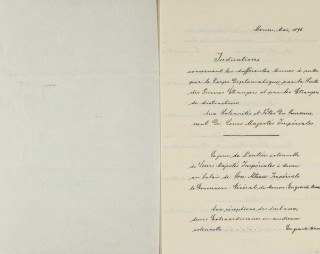 Moscou, Mai, 1896
Indications
concernant les différentes tenues à porter
par le Corps Diplomatique, par la Suite
des Princes Etrangers et par les Etrangers
de distinction
aux Solennités et Fêtes du Couronne-
ment de Leurs Majestés Impériales
Le jour de l'entrée solennelle
de Leurs Majestés Impériales à Moscou
au palais de Son Altesse Impériale
le Gouverneur Général de Moscou En grande tenue
Aux réceptions des Ambassa-
deurs Extraordinaires en audience
solennelle En grande tenue